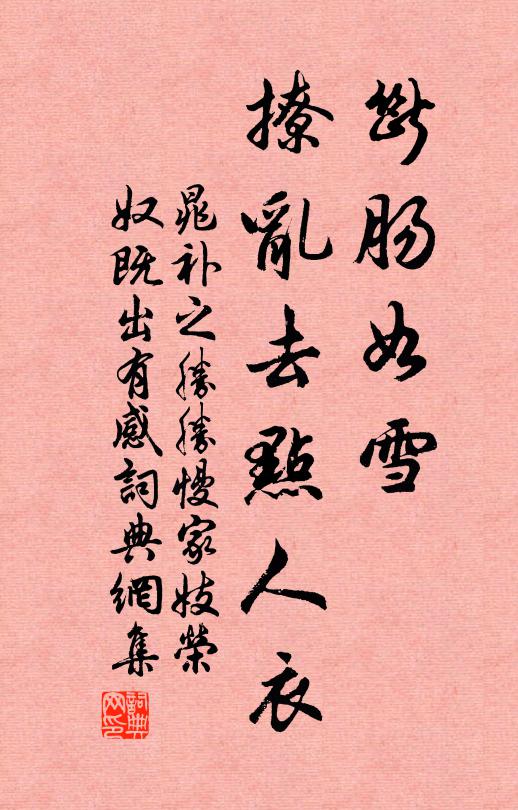 斷腸如雪
撩亂去點人衣
晁补之勝勝慢家妓榮
奴既出有感詞典網集
詞典网印